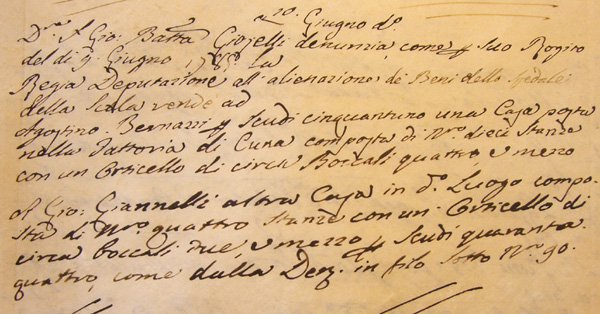 a 10. Giugno d.º
D.re f Gio: Batta Giojelli denunzia, come p Suo Rogito
del dì 9. Giugno 1788. la
Regia Deputazione all'alienazione de Beni dello Spedale
della Scala vende ad
Agostino Bernazzi p Scudi cinquantuno una Casa posta
nella Fattoria di Cuna composta di N.ro dieci Stanze
con un Orticello di circa Boccali quattro, e mezzo
Al Gio: Giannelli altra Casa in d.º Luogo compo-
sta di N.ro quattro Stanze con un Orticello di
circa boccali due, e mezzo p Scudi quaranta-
quattro, come dalla Denz. in filo sotto N.ro 90.